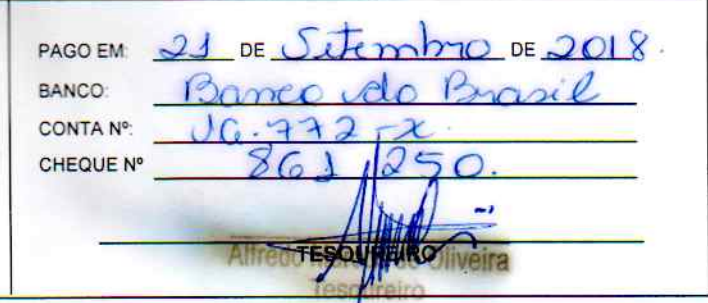 PAGO EM: 21 DE Setembro DE 2018.
BANCO: Banco do Brasil
CONTA Nº: 16.772-X.
CHEQUE Nº 861 250.
TESOUREIRO
Alfredo de Oliveira
Tesoureiro